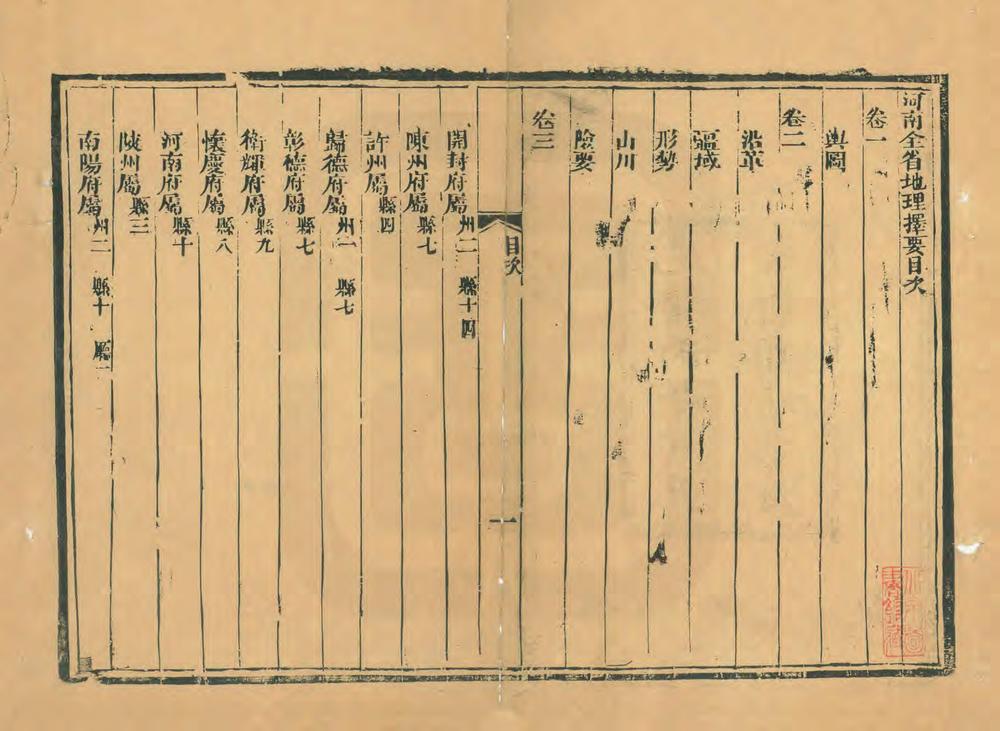 河南全省地理擇要目次
卷一
輿圖
卷二
沿革
疆域
形勢
山川
險要
卷三
目次
一
開封府屬州二 縣十四
陳州府屬縣七
許州屬縣四
歸德府屬州一 縣七
彰德府屬縣七
衛輝府屬縣九
懷慶府屬縣八
河南府屬縣十
陜州屬縣三
南陽府屬州二 縣十 廳一